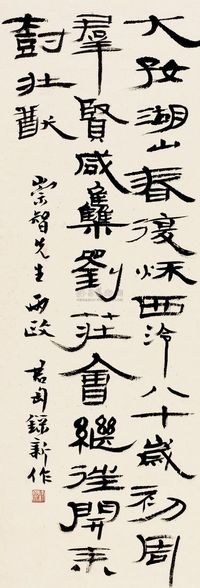 大好湖山春復秌西泠八十歲初周
羣賢咸集劉莊會繼往開来
尌壯猷
崇智先生兩政 君匋錄新作